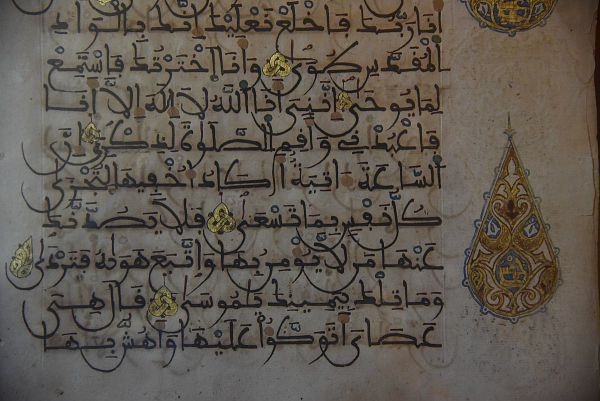 انا ربك فاخلع نعليك انك بالواد
المقدس طوى وانا اخترتك فاستمع
لما يوحى انني انا الله لا اله الا انا
فاعبدني واقم الصلوة لذكري ان
الساعة اتية اكاد اخفيها لتجزى
كل نفس بما تسعى فلا يصدنك
عنها من لا يومن بها واتبع هويه فتردى
وما تلك بيمينك يموسى قال هي
عصاي اتوكؤا عليها واهش بها